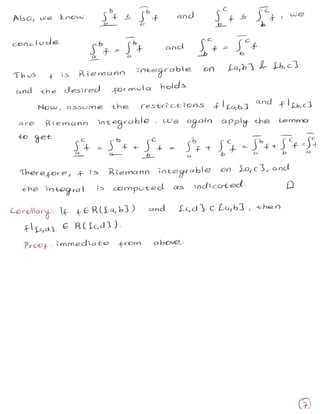 Also, we know \underline{∫}_a^b f ≤ \overline{∫}_a^b f and \underline{∫}_b^c f ≤ \overline{∫}_b^c f, we
conclude \underline{∫}_a^b f = \overline{∫}_a^b f and \underline{∫}_b^c f = \overline{∫}_b^c f
Thus f is Riemann integrable on [a,b] & [b,c]
and the desired formula holds
Now, assume the restrictions f|[a,b] and f|[b,c]
are Riemann integrable. We again apply the lemma
to get
\underline{∫}_a^c f = \underline{∫}_a^b f + \underline{∫}_b^c f = \overline{∫}_a^b f + \overline{∫}_b^c f = \overline{∫}_a^b f + \overline{∫}_b^c f = \overline{∫}_a^c f
Therefore, f is Riemann integrable on [a,c], and
the integral is computed as indicated. □
Corollary: If f ∈ R([a,b]) and [c,d] ⊂ [a,b], then
f|[c,d] ∈ R([c,d]).
Proof: immediate from above.
7